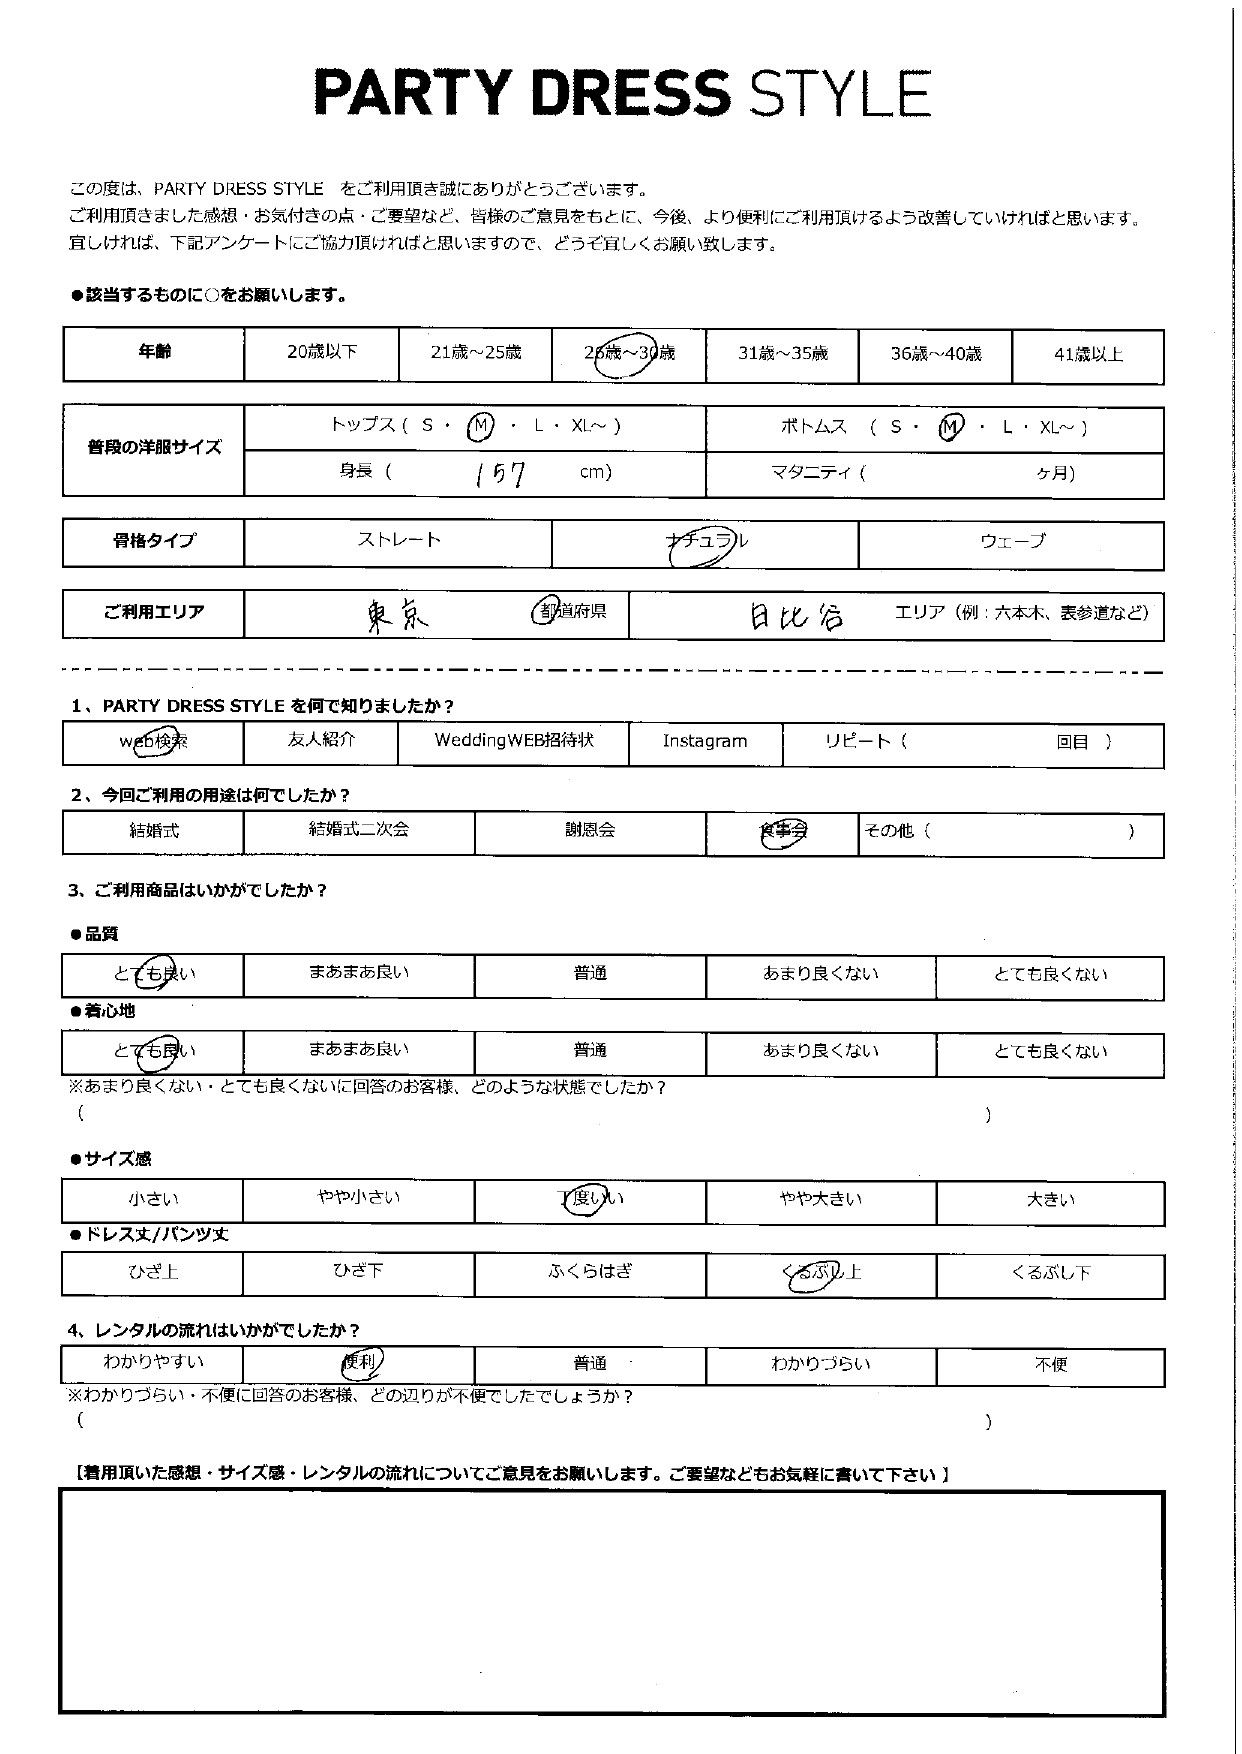 PARTY DRESS STYLE
この度は、PARTY DRESS STYLE をご利用頂き誠にありがとうございます。
ご利用頂きました感想・お気付きの点・ご要望など、皆様のご意見をもとに、今後、より便利にご利用頂けるよう改善していければと思います。
宜しければ、下記アンケートにご協力頂ければと思いますので、どうぞ宜しくお願い致します。
●該当するものに○をお願いします。
年齢 20歳以下 21歳～25歳 26歳～30歳 31歳～35歳 36歳～40歳 41歳以上
普段の洋服サイズ
トップス ( S ・ M ・ L ・ XL～ ) ボトムス ( S ・ M ・ L ・ XL～ )
身長 ( 157 cm) マタニティ ( ヶ月)
骨格タイプ ストレート ナチュラル ウェーブ
ご利用エリア 東京 都道府県 日比谷 エリア（例：六本木、表参道など）
1、PARTY DRESS STYLE を何で知りましたか？
web検索 友人紹介 WeddingWEB招待状 Instagram リピート ( 回目 )
2、今回ご利用の用途は何でしたか？
結婚式 結婚式二次会 謝恩会 食事会 その他 ( )
3、ご利用商品はいかがでしたか？
●品質
とても良い まあまあ良い 普通 あまり良くない とても良くない
●着心地
とても良い まあまあ良い 普通 あまり良くない とても良くない
※あまり良くない・とても良くないに回答のお客様、どのような状態でしたか？
( )
●サイズ感
小さい やや小さい 丁度いい やや大きい 大きい
●ドレス丈/パンツ丈
ひざ上 ひざ下 ふくらはぎ くるぶし上 くるぶし下
4、レンタルの流れはいかがでしたか？
わかりやすい 便利 普通 わかりづらい 不便
※わかりづらい・不便に回答のお客様、どの辺りが不便でしたでしょうか？
( )
【着用頂いた感想・サイズ感・レンタルの流れについてご意見をお願いします。ご要望などもお気軽に書いて下さい 】